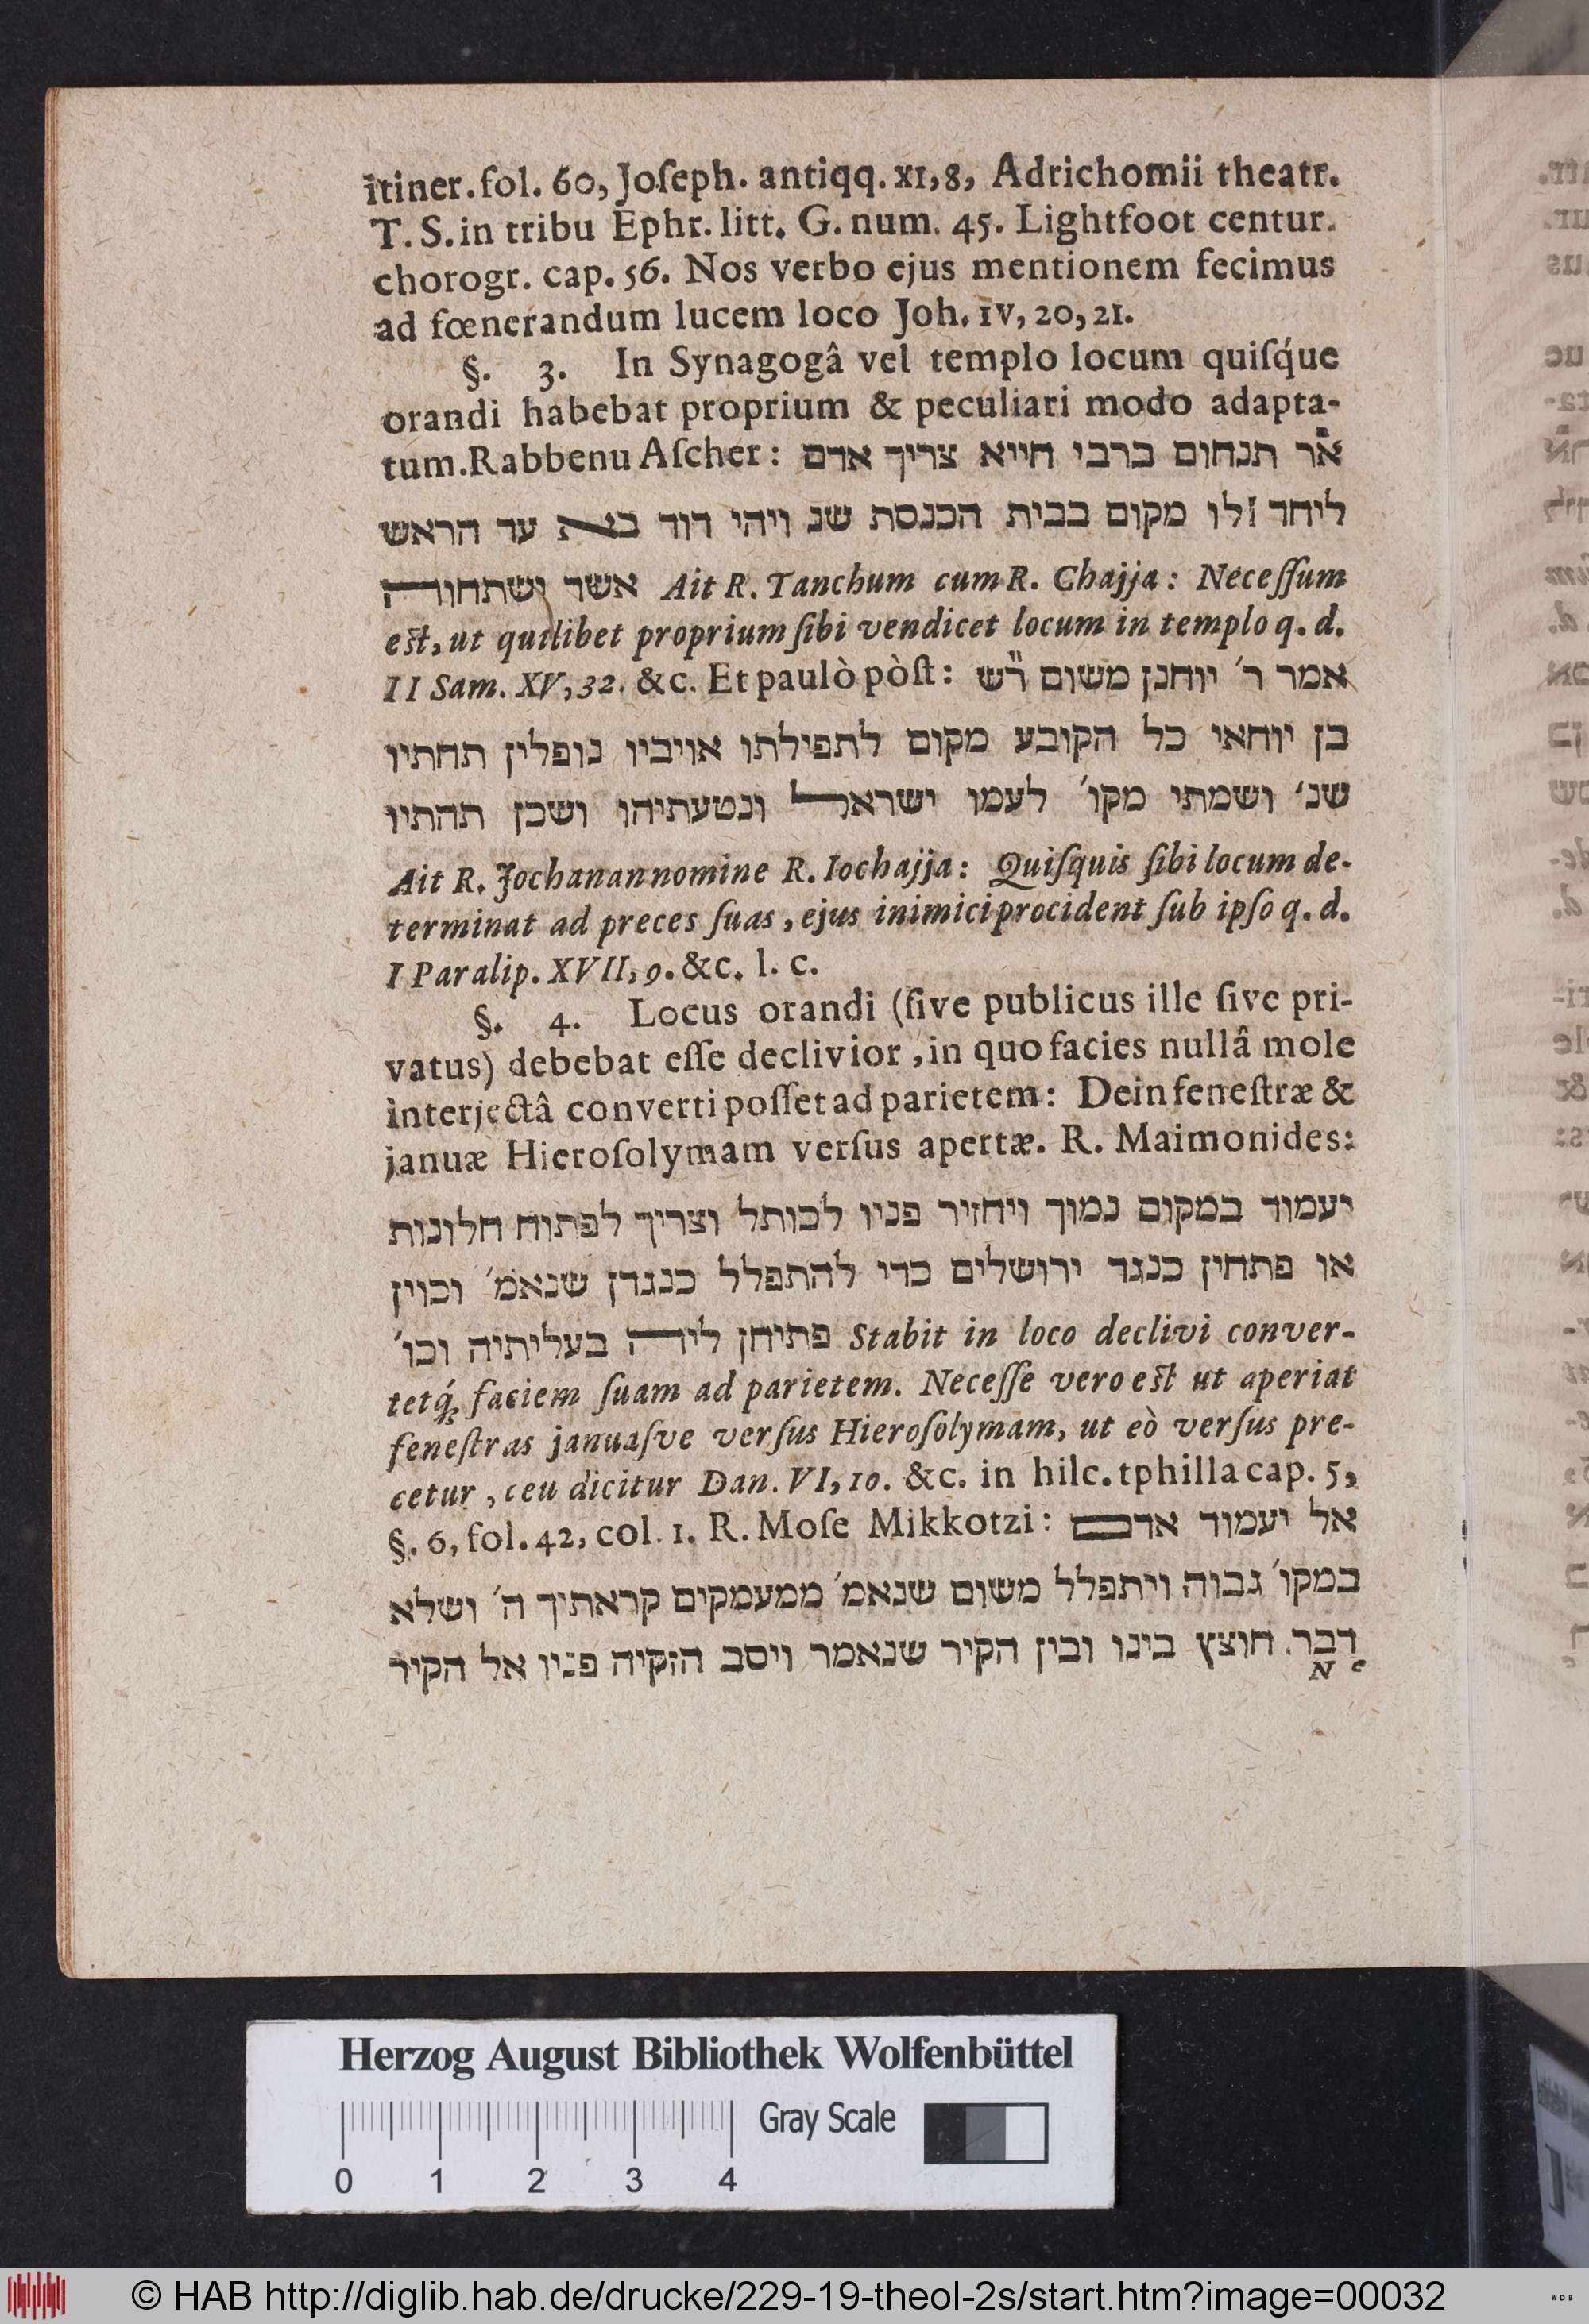 itiner. fol. 60, Joſeph. antiqq. XI, 8, Adrichomii theatr.
T. S. in tribu Ephr. litt. G. num. 45. Lightfoot centur.
chorogr. cap. 56. Nos verbo ejus mentionem fecimus
ad fœnerandum lucem loco Joh. IV, 20, 21.
§. 3. In Synagogâ vel templo locum quiſq́ue
orandi habebat proprium & peculiari modo adapta-
tum. Rabbenu Aſcher: אר תנחום ברבי חייא צריך אדם
ליחד לו מקום בבית הכנסת שנ ויהי דוד בא עד הראש
אשר ישתחוה Ait R. Tanchum cum R. Chajja: Neceſſum
eſt, ut quilibet proprium ſibi vendicet locum in templo q. d.
II Sam. XV, 32. &c. Et paulò pòſt: אמר ר׳ יוחנן משום ר״ש
בן יוחאי כל הקובע מקום לתפילתו אויביו נופלין תחתיו
שנ׳ ושמתי מקו׳ לעמו ישראל ונטעתיהו ושכן תהתיו
Ait R. Jochanan nomine R. Iochajja: Quiſquis ſibi locum de-
terminat ad preces ſuas, ejus inimici procident ſub ipſo q. d.
I Paralip. XVII, 9. &c. l. c.
§. 4. Locus orandi (ſive publicus ille ſive pri-
vatus) debebat eſſe declivior, in quo facies nullâ mole
interjectâ converti poſſet ad parietem: Dein feneſtræ &
januæ Hieroſolymam verſus apertæ. R. Maimonides:
יעמוד במקום נמוך ויחזיר פניו לכותל וצריך לפתוח חלונות
או פתחין כנגד ירושלים כדי להתפלל כנגדן שנאמ׳ וכוין
פתיחן ליה בעליתיה וכו׳ Stabit in loco declivi conver-
tetq́; faciem ſuam ad parietem. Neceſſe vero eſt ut aperiat
feneſtras januaſve verſus Hieroſolymam, ut eò verſus pre-
cetur, ceu dicitur Dan. VI, 10. &c. in hilc. tphilla cap. 5,
§. 6, fol. 42, col. 1. R. Moſe Mikkotzi: אל יעמוד אדם
במקו׳ גבוה ויתפלל משום שנאמ׳ ממעמקים קראתיך ה׳ ושלא
דבר חוצץ בינו ובין הקיר שנאמר ויסב הזקיה פניו אל הקיר
Herzog August Bibliothek Wolfenbüttel
Gray Scale
0 1 2 3 4
© HAB http://diglib.hab.de/drucke/229-19-theol-2s/start.htm?image=00032